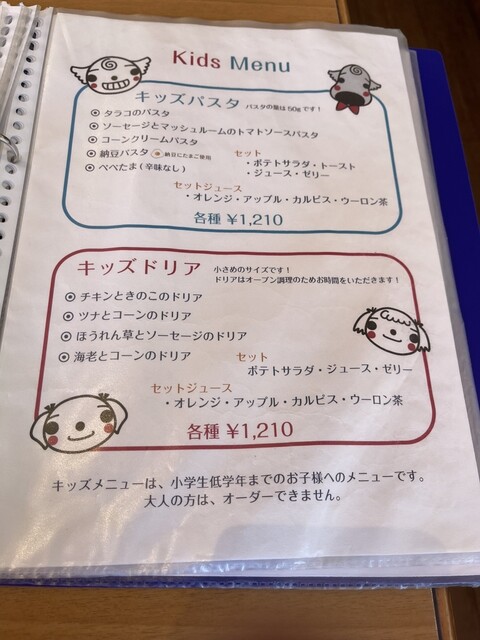 Kids Menu
キッズパスタ パスタの量は50gです！
◉ タラコのパスタ
◉ ソーセージとマッシュルームのトマトソースパスタ
◉ コーンクリームパスタ
◉ 納豆パスタ 納豆にたまご使用
◉ ペペたま(辛味なし)
セット
・ポテトサラダ・トースト
・ジュース・ゼリー
セットジュース
・オレンジ・アップル・カルピス・ウーロン茶
各種 ¥1,210
キッズドリア 小さめのサイズです！
ドリアはオーブン調理のためお時間をいただきます！
◉ チキンときのこのドリア
◉ ツナとコーンのドリア
◉ ほうれん草とソーセージのドリア
◉ 海老とコーンのドリア
セット
ポテトサラダ・ジュース・ゼリー
セットジュース
・オレンジ・アップル・カルピス・ウーロン茶
各種 ¥1,210
キッズメニューは、小学生低学年までのお子様へのメニューです。
大人の方は、オーダーできません。